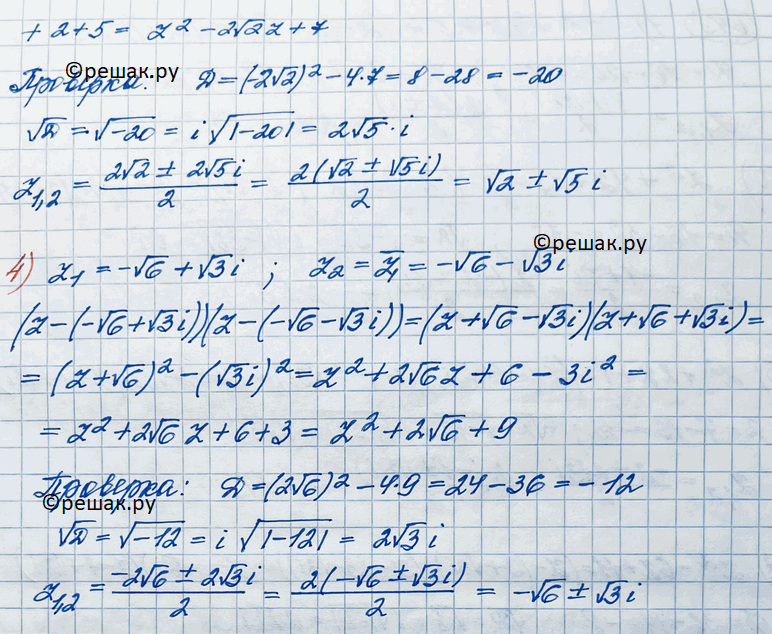 + 2 + 5 = z² − 2√2 z + 7
©решак.ру
Проверка: D = (−2√2)² − 4·7 = 8 − 28 = −20
√D = √−20 = i √|−20| = 2√5 · i
z₁,₂ = (2√2 ± 2√5i)/2 = 2(√2 ± √5i)/2 = √2 ± √5 i
©решак.ру
4) z₁ = −√6 + √3 i ; z₂ = z̅₁ = −√6 − √3i
(z − (−√6 + √3i))(z − (−√6 − √3i)) = (z + √6 − √3i)(z + √6 + √3i) =
= (z + √6)² − (√3i)² = z² + 2√6 z + 6 − 3i² =
= z² + 2√6 z + 6 + 3 = z² + 2√6 + 9
Проверка: D = (2√6)² − 4·9 = 24 − 36 = −12
©решак.ру
√D = √−12 = i √|−12| = 2√3 i
z₁,₂ = (−2√6 ± 2√3i)/2 = 2(−√6 ± √3i)/2 = −√6 ± √3 i